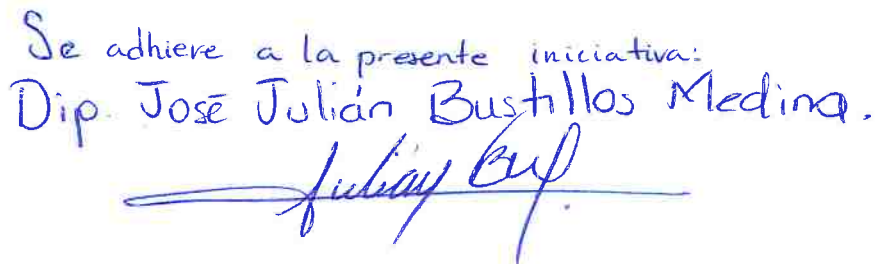 Se adhiere a la presente iniciativa:
Dip. José Julián Bustillos Medina.